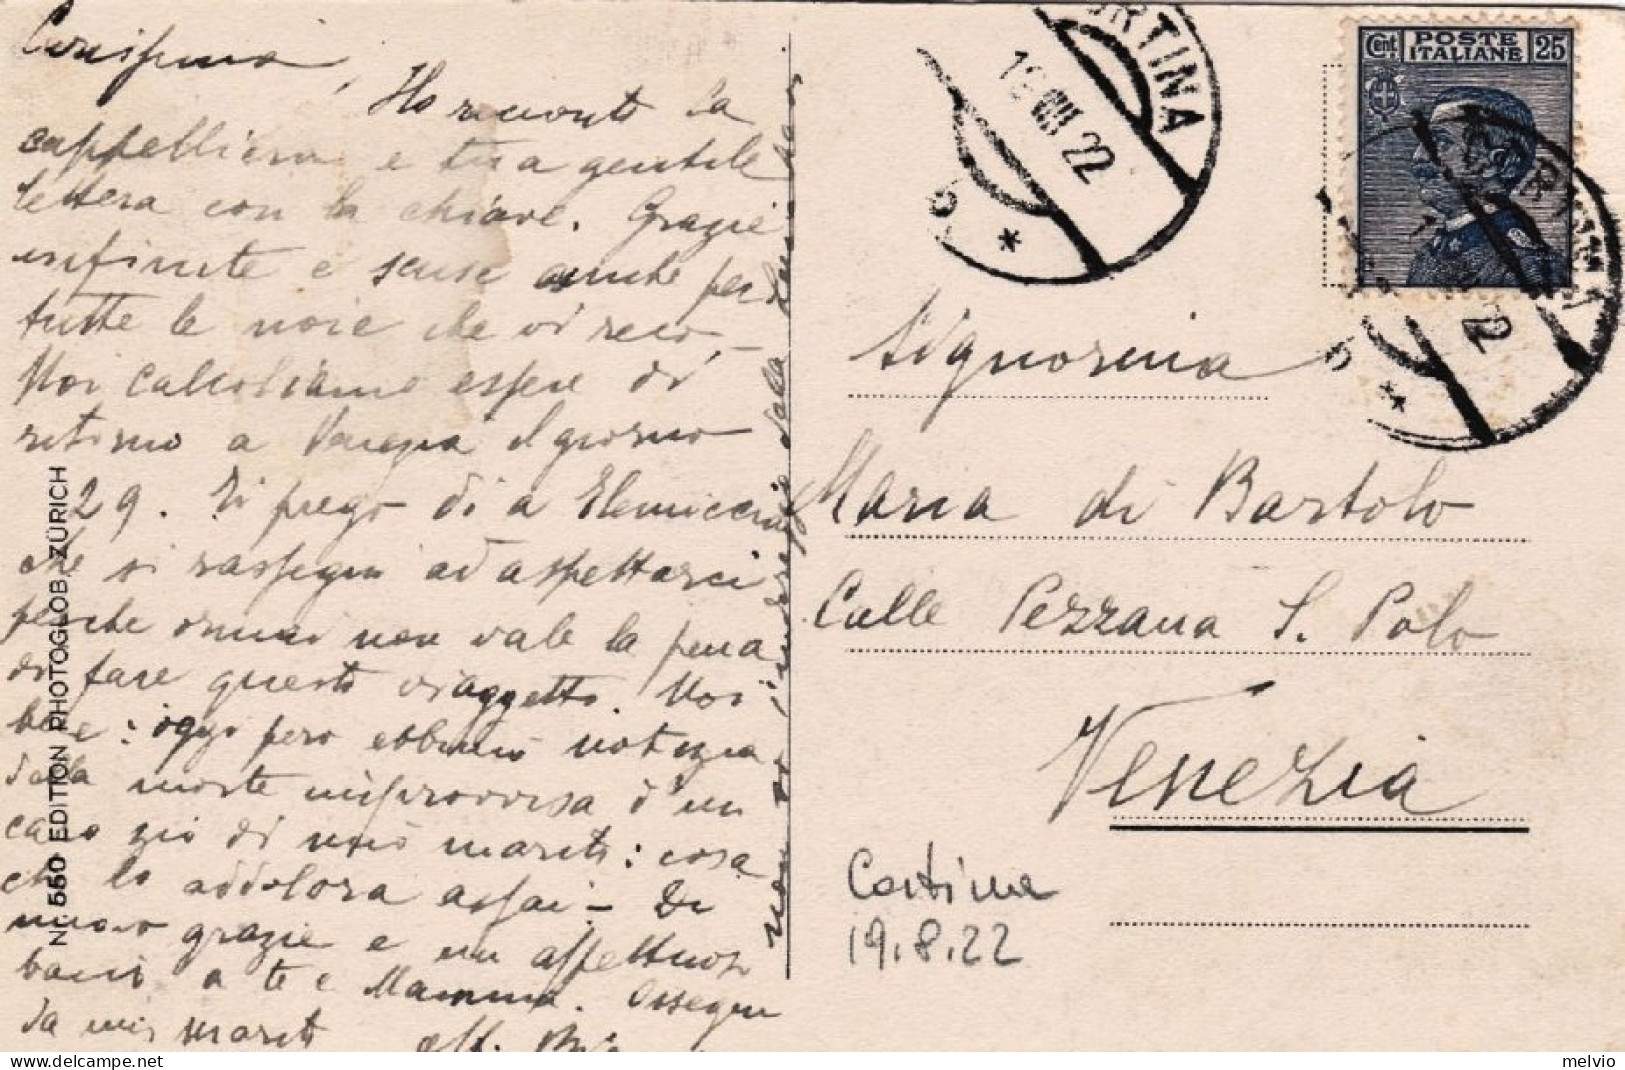 Carissima,
Ho ricevuto la
cappelliera e tua gentile
lettera con la chiave. Grazie
infinite e scuse anche per
tutte le noie che vi reco,
Noi calcoliamo essere di
ritorno a Venezia il giorno
29. Ti prego di a
che si rassegni ad aspettarci
perchè ormai non vale la pena
di fare questo viaggetto. Noi
bene: oggi però ebbimo notizia
della morte improvvisa d'un
caro zio di mio marito: cosa
che lo addolora assai - Di
nuovo grazie e un affettuoso
bacio a te e Mamma. Ossequi
da mio marito aff.
No. 550 EDITION PHOTOGLOB, ZÜRICH
CORTINA
19 VIII 22
b
*
Cent. POSTE ITALIANE 25
22
b
*
Signorina
Maria di Bartolo
Calle Pezzana S. Polo
Venezia
Cortina
19.8.22
melvio